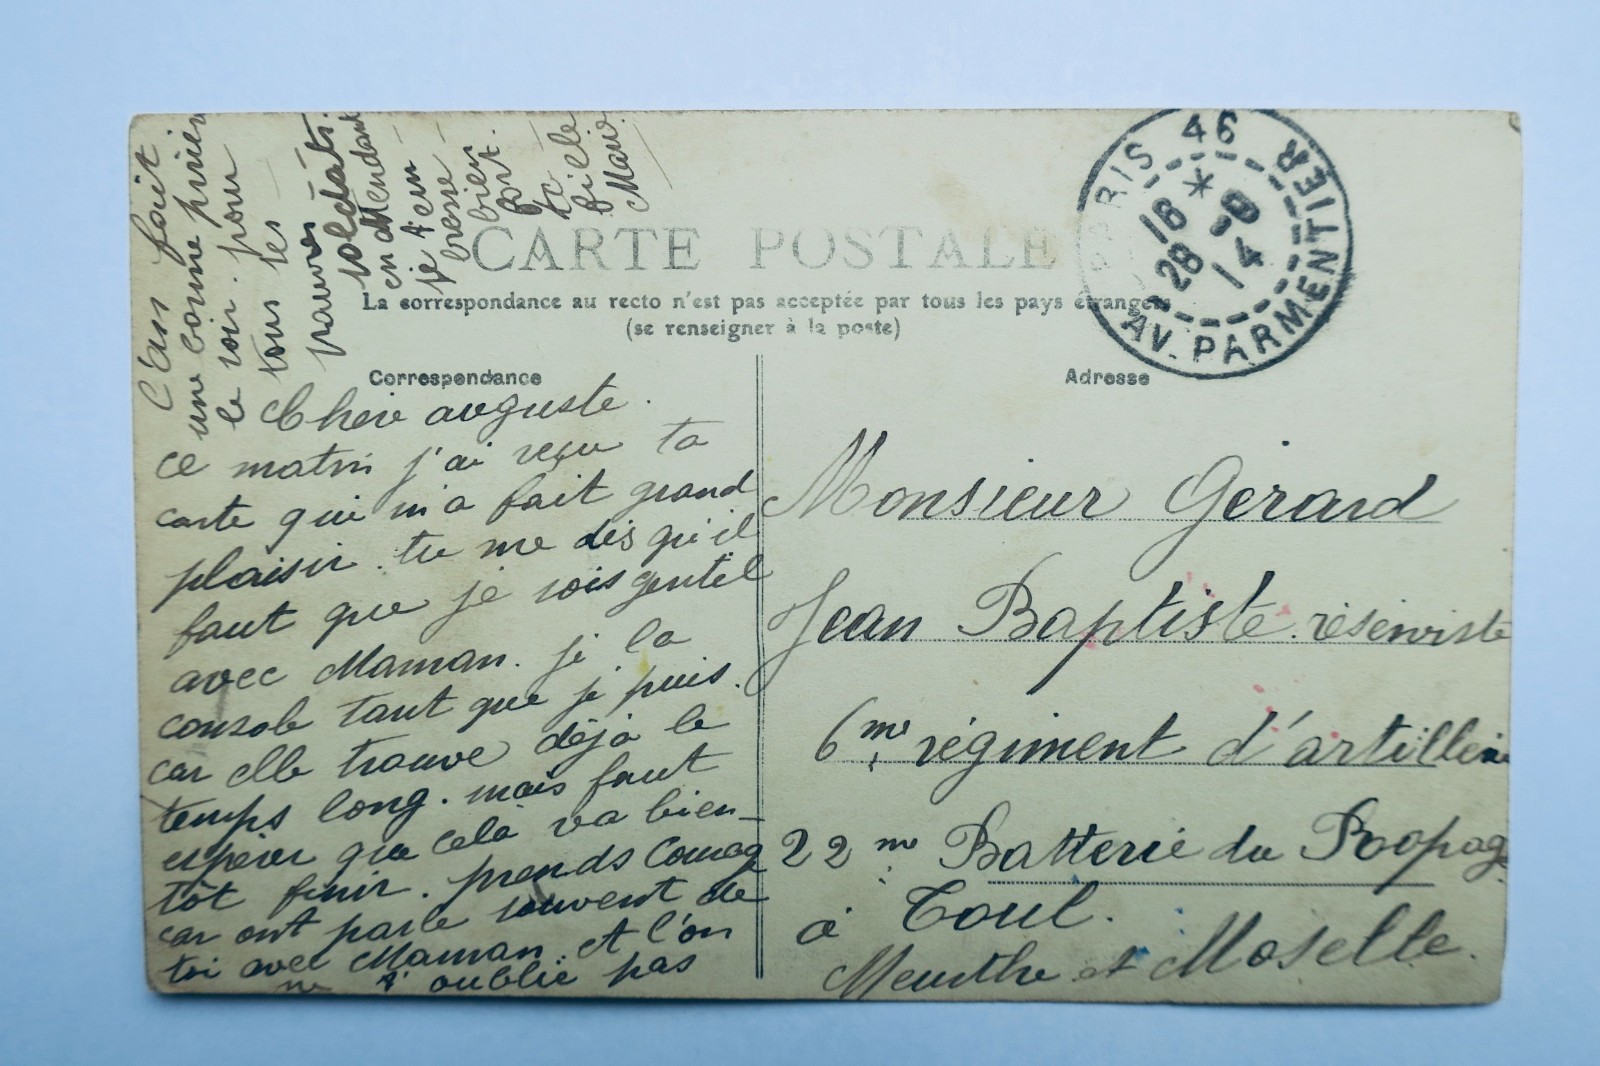 CARTE POSTALE
La correspondance au recto n'est pas acceptée par tous les pays étrangers
(se renseigner à la poste)
Correspondance
Adresse
PARIS 46
AV. PARMENTIER
16 *
28 -9
14
Cher auguste.
ce matin j'ai reçu ta
carte qui m'a fait grand
plaisir. tu me dis qu'il
faut que je sois gentil
avec Maman. je la
console tant que je puis.
car elle trouve déjà le
temps long. mais faut
espérer que celà va bien-
tôt finir. prends Courag
car ont parle souvent de
toi avec Maman. et l'on
ne t'oublie pas
l'on fait
une bonne prière
le soir. pour
tous les
pauvres
soldats.
en attendant
je t'em-
brasse
bien
fort.
ta
fille
Marie.
Monsieur Gérard
Jean Baptiste. réserviste
6me régiment d'artillerie
22me Batterie du
à Toul.
Meurthe et Moselle.